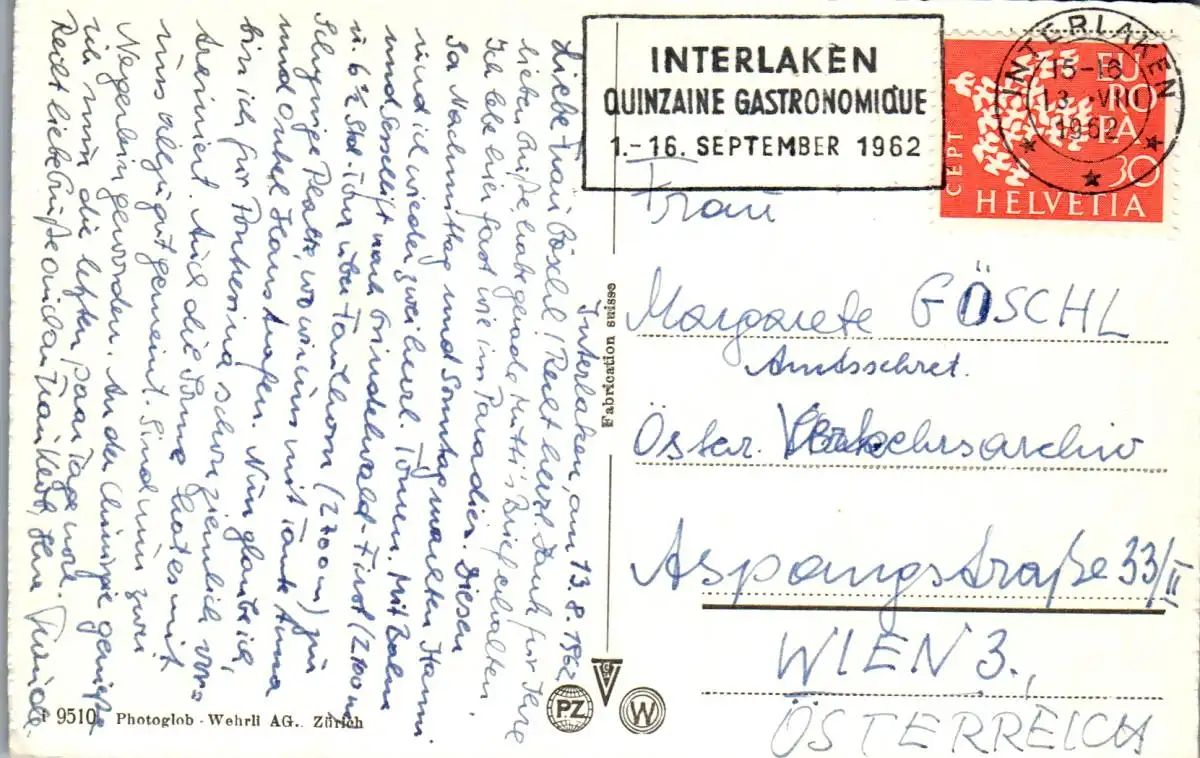 INTERLAKEN
QUINZAINE GASTRONOMIQUE
1.-16. SEPTEMBER 1962
INTERLAKEN
15-16
13.-VIII
1962
EUROPA
CEPT
30
HELVETIA
Frau
Margarete GÖSCHL
Amtssekret.
Österr. Verkehrsarchiv
Aspangstraße 33/II
WIEN 3.,
ÖSTERREICH
Fabrication suisse
Interlaken, am 13.8.1962
Liebe Frau Göschl! Recht herzl. Dank für Ihre
lieben Grüße, habe gerade Mutti's Brief erhalten.
Ich lebe hier fast wie im Paradies. Diesen
Sa Nachmittag und Sonntag machten Hanni
und ich wieder zwei herrl. Touren. Mit Bahn
und Sessellift nach Grindelwald-First (2200 m)
u. 6 ½ Std.-Tour über Faulhorn (2700 m) zu
Schynige Platte, wo wir uns mit Tante Anna
und Onkel Hans trafen. Nun glaube ich,
bin ich für Pontresina schon ziemlich vor-
trainiert. Auch die Sonne hat es mit
uns allzu gut gemeint. Sind nun zwei
Negerlein geworden. An der Chinige genieße
ich nun die letzten paar Tage noch.
Recht liebe Grüße auch an Frau Ihre
P 9510 Photoglob - Wehrli AG., Zürich
PZ
W